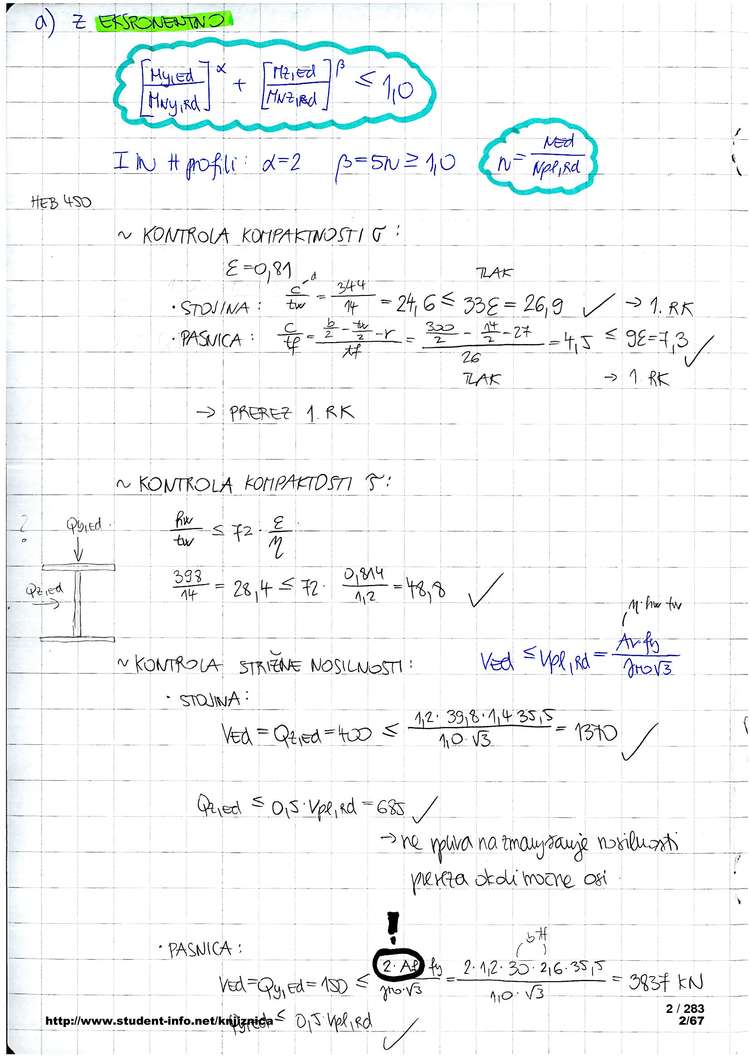 a) Z EKSPONENTNO
[My,Ed / MNy,Rd]^α + [Mz,Ed / MNz,Rd]^β ≤ 1,0
I IN H profili: α=2 β=5n ≥ 1,0 n = NEd / Npl,Rd
HEB 450
~ KONTROLA KOMPAKTNOSTI σ:
ε=0,81
TLAK
· STOJINA: c / tw = 344 / 14 = 24,6 ≤ 33ε = 26,9 ✓ → 1. RK
· PASNICA: c / tf = (b/2 - tw/2 - r) / tf = (300/2 - 14/2 - 27) / 26 = 4,5 ≤ 9ε=7,3 ✓
TLAK → 1 RK
→ PREREZ 1. RK
~ KONTROLA KOMPAKTOSTI τ:
hw / tw ≤ 72 · ε / η
Qy,Ed
Qz,Ed
398 / 14 = 28,4 ≤ 72 · 0,814 / 1,2 = 48,8 ✓
η·hw·tw
~ KONTROLA STRIŽNE NOSILNOSTI: VEd ≤ Vpl,Rd = Av·fy / γM0·√3
· STOJINA:
VEd = Qz,Ed = 400 ≤ 1,2 · 39,8 · 1,4 · 35,5 / 1,0 · √3 = 1370 ✓
Qz,Ed ≤ 0,5 · Vpl,Rd = 685 ✓
→ ne vpliva na zmanjšanje nosilnosti
prereza okoli močne osi.
!
b tf
· PASNICA:
VEd = Qy,Ed = 150 ≤ 2 · Af fy / γM0·√3 = 2 · 1,2 · 30 · 2,6 · 35,5 / 1,0 · √3 = 3837 KN
2 / 283
http://www.student-info.net/knjiznica 2/67
≤ 0,5 Vpl,Rd ✓